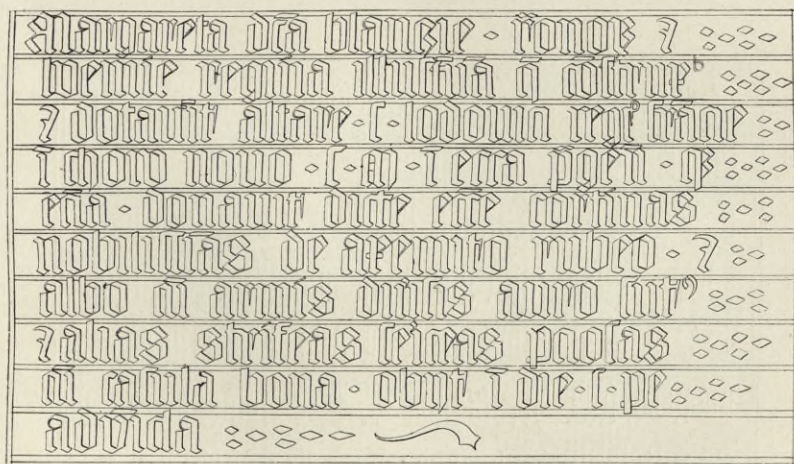 Margareta dc̄a blancz̄e · romoꝝ ⁊
boemie regina illustriſſīa q̄ cōſtrux
⁊ dotauit altare · ſ · lodouici regꝰ frācie
ī choro nouo · ſ · m · ī ecc̄a pgēn ·
donauit dicte ecc̄e cortinas
nobiliſſīas de axemito rubeo · ⁊
albo cū armis diūſis auro ſutꝰ
⁊ alias strifeas ſeiceas pcioſas
cū caſula bona · obijt ī die · ſ · pe
advīcla